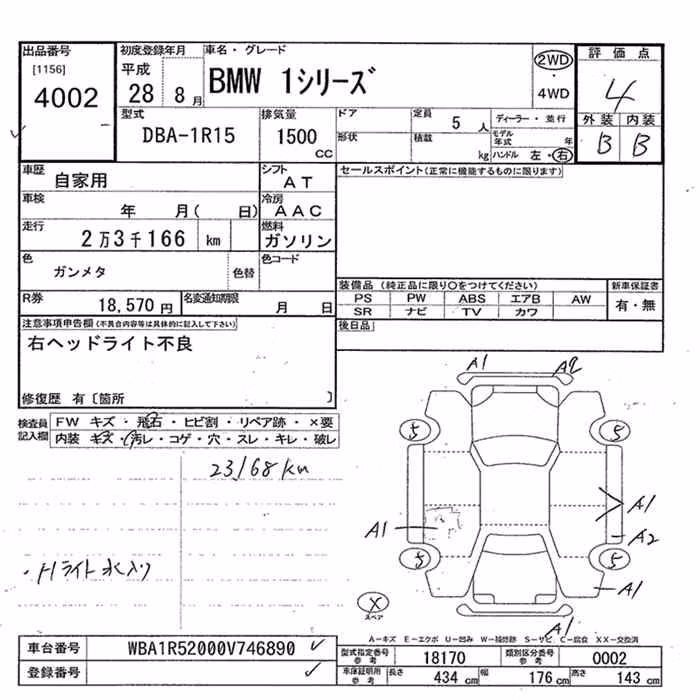 出品番号
[1156]
4002
初度登録年月
平成
28 8 月
車名・グレード
BMW 1シリーズ
2WD
・
4WD
評価点
4
外装 内装
B B
型式
DBA-1R15
排気量
1500
cc
ドア
形状
定員
5 人
積載
kg
ディーラー・並行
モデル年式 年
ハンドル 左・右
車歴
自家用
シフト
AT
車検
年 月( 日)
冷房
AAC
走行
2万3千166 km
燃料
ガソリン
色
ガンメタ
色替
色コード
R券
18,570 円
名変通知期限
月 日
セールスポイント(正常に機能するものに限ります)
装備品 (純正品に限り○をつけてください)
PS PW ABS エアB AW
SR ナビ TV カワ
新車保証書
有・無
後日品
注意事項申告欄(不具合内容等は具体的に記入して下さい)
右ヘッドライト不良
修復歴 有〔箇所 〕
検査員
記入欄
FW キズ・飛石・ヒビ割・リペア跡・×要
内装 キズ・汚レ・コゲ・穴・スレ・キレ・破レ
23168km
・Hライト水入り
A1 A2
5 5
A1
A1
A2
5 5
A1
X
スペア
A1
A-キズ E-エクボ U-凹み W-補修跡 S-サビ C-腐食 XX-交換済
車台番号
WBA1R52000V746890
登録番号
型式指定番号
参考
18170
類別区分番号
参考
0002
車庫証明用
参考
長さ 434 cm 幅 176 cm 高さ 143 cm